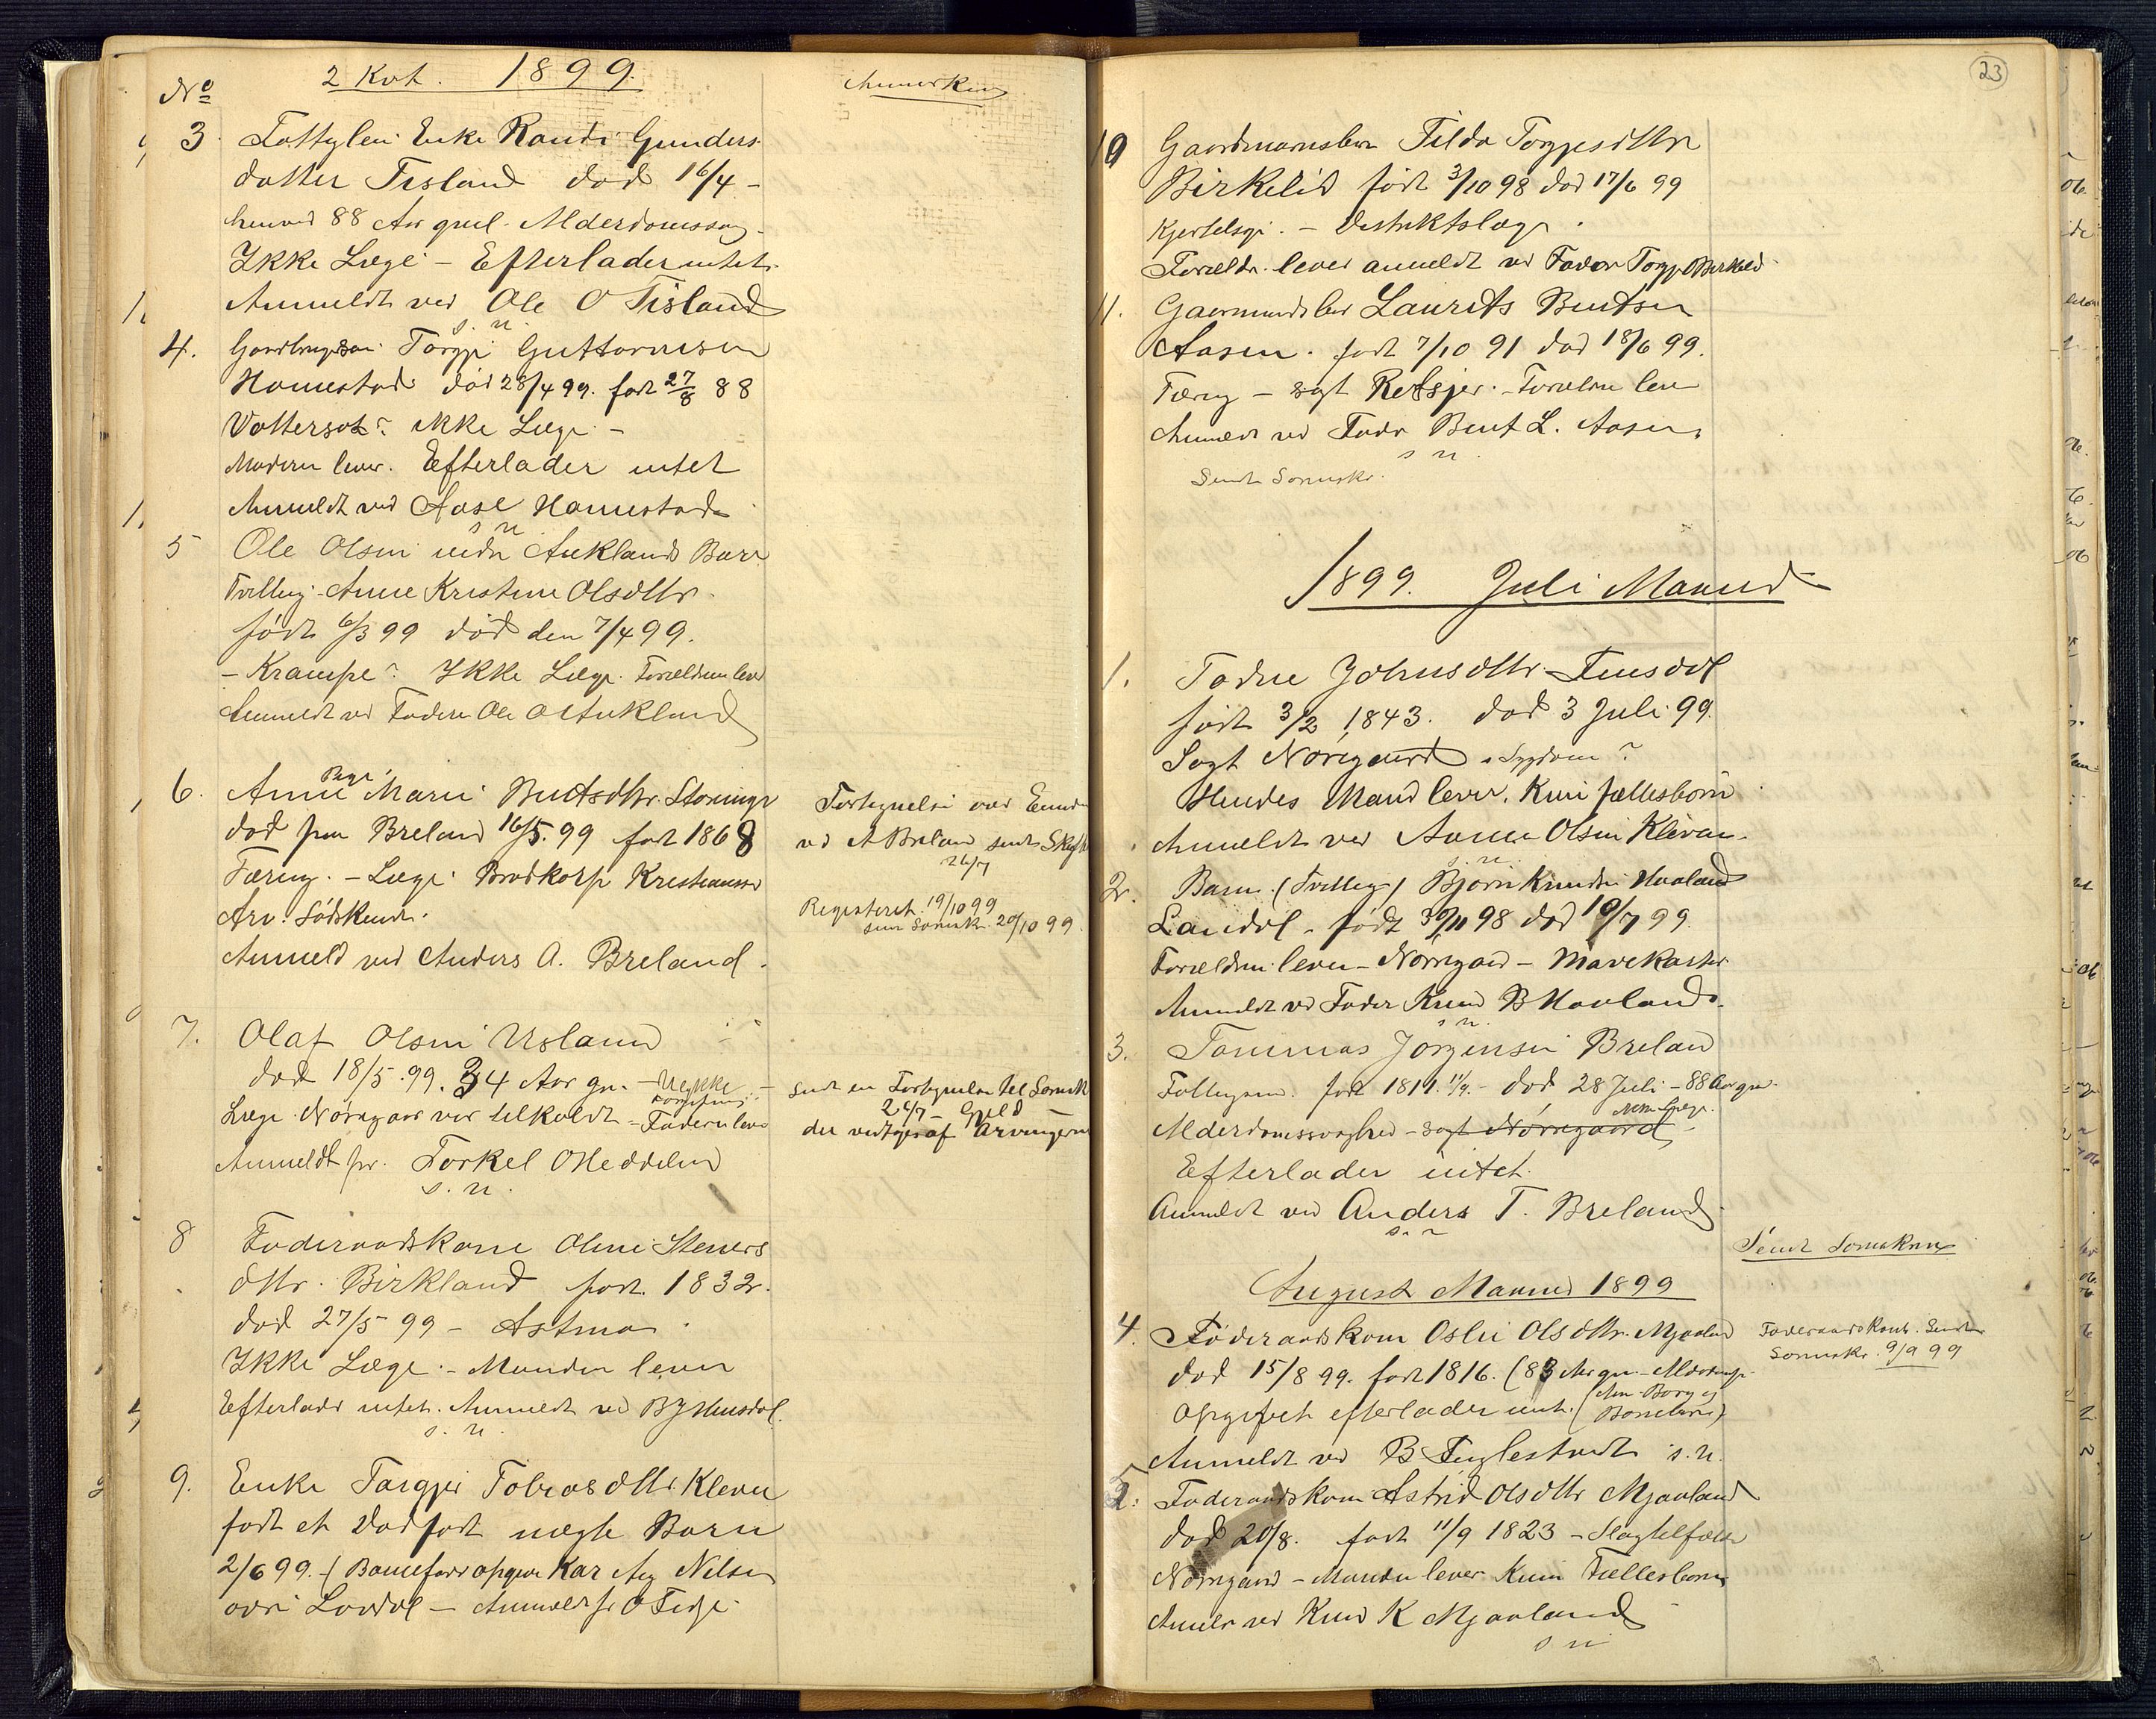 No 2 Kvt. 1899. Anmerkning
3. Fattiglem Enke Randi Gunders
datter Tisland død 16/4 -
henved 88 Aar gml. Alderdomssvag.
Ikke Læge - Efterlader intet.
Anmeldt ved Ole O Tisland
s. n.
4. Gaardbrugersøn Torgje Guttormsen
Homestad død 28/4 99. født 27/8 88
Vattersot? ikke Læge. -
Moderen lever. Efterlader intet
Anmeldt ved Aase Homestad
s n
5 Ole Olsen nedre Auklands Barn
Tvilling - Anne Kristine Olsdttr.
født 6/3 99 død den 7/4 99.
- Krampe? Ikke Læge. Forældrene lever
Anmeldt ved Faderen Ole O Aukland
6. Anne Marie Bentsdttr.
død paa Breland 16/5. 99 født 1868
Tæring. - Læge Brodkorp Kristianssd
Arv. Sødskende.
Anmeld ved Anders A. Breland.
Fortegnelse over
ved A Breland sendt
26/7
Registeret 19/10 99
Sorensk. 20/10 99.
7. Olaf Olsen Usland
død 18/5. 99. 34 Aar gm.
Læge Nørregaar var tilkaldt - Faderen lever
Anmeldt pr. Torkel O Heddeland
s. n.
sendt en Fortegnelse til Sorensk
26/7 - Gjæld
der vedtages af Arvingerne
8 Føderaadskone Oline Steners
dttr. Birkland født 1832.
død 27/5 99 - Astma
Ikke Læge. - Manden lever
Efterlader intet. Anmeldt ved B J
s. n.
9. Enke Torgjer Tobiasdttr. Kleven
født et dødfødt uægte Barn
2/6 99. (Barnefader opgives
øvre Lauvdal - Anmeldt pr O
23
10 Gaardmandsbarn Tilda Torgjesdttr
Birkelid født 3/10 98 død 17/6 99
Kjertelsyg. - Distriktslæge
Foreldr. lever anmeldt ved Fader Torgje O Birkelid
11. Gaarmandsbarn Laurits Bentsen
Aasen. født 7/10 91 død 18/6 99.
Tæring - søgt - Forældre lever
Anmeldt ved Fader Bent L. Aasen.
s n
Sendt Sorenskr.
1899. Juli Maaned
1. Todne Johnsdttr.
født 3/2 1843. død 3 Juli 99.
Søgt Nørregaard. Sygdom?
Hendes Mand lever. Kun fællesbørn
Anmeldt ved Aanen Olsen Kleven.
s. n.
2. Barn. (Tvilling) Bjørn Knudsen Haaland
Landdal. født 30/11 98 død 10/7 99.
Forældrene lever - Nørregaard - Mavekatar
Anmeldt ved Fader Knud B Haaland.
s n.
3. Tommas Jørgensen Breland
født 1811. 11/9. - død 28 Juli - 88 Aar gm.
Alderdomssvaghed - søgt Nørregaard
Efterlader intet.
Anmeldt ved Anders T. Breland
s. n
Sendt Sorenskriver
August Maaned 1899
4. Føderaadskone Oslei Olsdttr. Mjaaland
død 15/8 99. født 1816. (83 Aar gm -
Opgivet efterlader intet.
Anmeldt ved B Fuglestvedt s. n.
Føderaadskone. Sendt
Sorenskr. 9/9 99
5. Føderaadskone Astrid Olsdttr Mjaaland
død 20/8. født 11/9 1823 -
Nørregaard - Manden lever Kun Fællesbørn
Anmeldt ved Knud K Mjaaland
s n